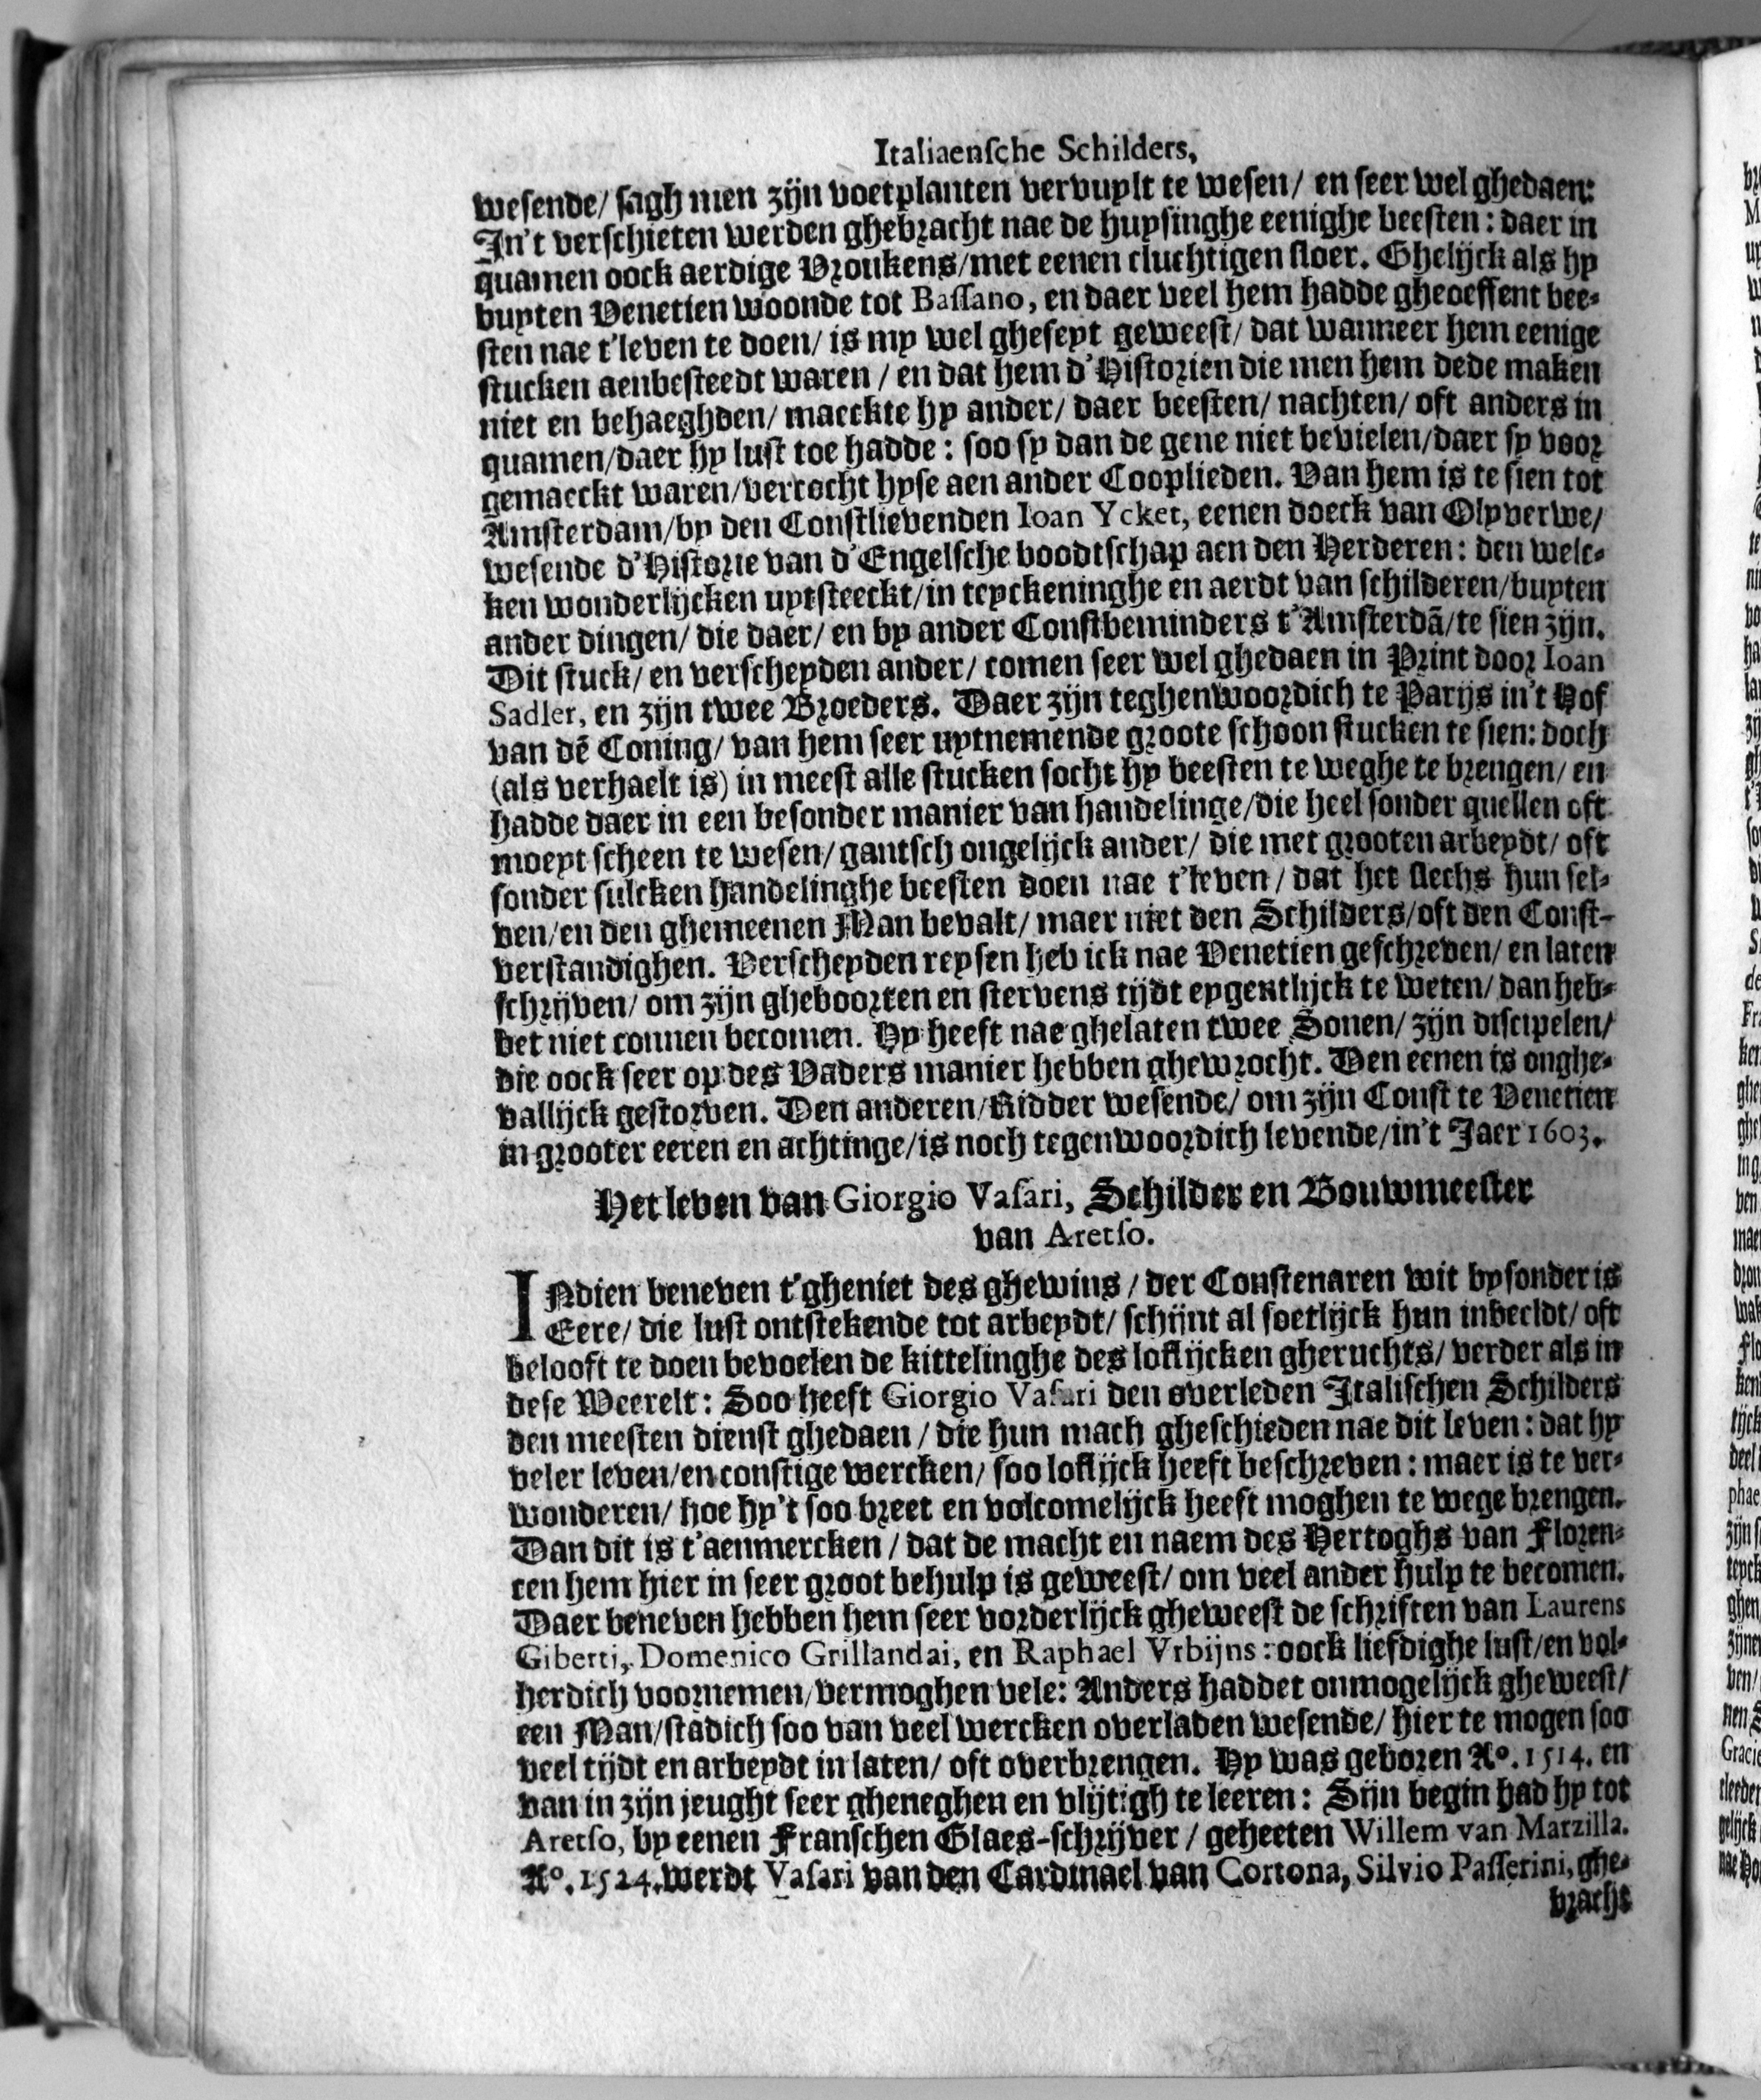 Italiaensche Schilders,
wesende/ sagh men zijn voetplanten vervuylt te wesen/ en seer wel ghedaen:
In't verschieten werden ghebracht nae de huysinghe eenighe beesten: daer in
quamen oock aerdige Vroukens/met eenen cluchtigen sloer. Ghelijck als hy
buyten Venetien woonde tot Bassano, en daer veel hem hadde gheoeffent bee-
sten nae t'leven te doen/ is my wel gheseyt geweest/ dat wanneer hem eenige
stucken aenbesteedt waren / en dat hem d'Historien die men hem dede maken
niet en behaeghden/ maeckte hy ander/ daer beesten/ nachten/ oft anders in
quamen/daer hy lust toe hadde: soo sy dan de gene niet bevielen/daer sy voor
gemaeckt waren/vercocht hyse aen ander Cooplieden. Van hem is te sien tot
Amsterdam/by den Constlievenden Ioan Ycket, eenen doeck van Olyverwe/
wesende d'Historie van d'Engelsche boodtschap aen den Herderen: den welc-
ken wonderlijcken uytsteeckt/in teyckeninghe en aerdt van schilderen/buyten
ander dingen/ die daer/ en by ander Constbeminders t'Amsterdã/te sien zijn.
Dit stuck/ en verscheyden ander/ comen seer wel ghedaen in Print door Ioan
Sadler, en zijn twee Broeders. Daer zijn teghenwoordich te Parijs in't Hof
van dẽ Coning/ van hem seer uytnemende groote schoon stucken te sien: doch
(als verhaelt is) in meest alle stucken socht hy beesten te weghe te brengen/ en
hadde daer in een besonder manier van handelinge/die heel sonder quellen oft
moeyt scheen te wesen/ gantsch ongelijck ander/ die met grooten arbeydt/ oft
sonder sulcken handelinghe beesten doen nae t'leven / dat het slechs hun sel-
ven/en den ghemeenen Man bevalt/ maer niet den Schilders/oft den Const-
verstandighen. Verscheyden reysen heb ick nae Venetien geschreven/ en laten
schrijven/ om zijn gheboorten en stervens tijdt eygentlijck te weten/ dan heb-
bet niet connen becomen. Hy heeft nae ghelaten twee Sonen/ zijn discipelen/
die oock seer op des Vaders manier hebben ghewrocht. Den eenen is onghe-
vallijck gestorven. Den anderen/Ridder wesende/ om zijn Const te Venetien
in grooter eeren en achtinge/is noch tegenwoordich levende/in't Jaer 1603.
Het leven van Giorgio Vasari, Schilder en Bouwmeester
van Aretso.
INdien beneven t'gheniet des ghewins / der Constenaren wit bysonder is
Eere/ die lust ontstekende tot arbeydt/ schijnt al soetlijck hun inbeeldt/ oft
belooft te doen bevoelen de kittelinghe des loflijcken gheruchts/ verder als in
dese Weerelt: Soo heeft Giorgio Vasari den overleden Italischen Schilders
den meesten dienst ghedaen / die hun mach gheschieden nae dit leven: dat hy
veler leven/en constige wercken/ soo loflijck heeft beschreven: maer is te ver-
wonderen/ hoe hy't soo breet en volcomelijck heeft moghen te wege brengen.
Dan dit is t'aenmercken / dat de macht en naem des Hertoghs van Floren-
cen hem hier in seer groot behulp is geweest/ om veel ander hulp te becomen.
Daer beneven hebben hem seer vorderlijck gheweest de schriften van Laurens
Giberti, Domenico Grillandai, en Raphael Vrbijns: oock liefdighe lust/en vol-
herdich voornemen/vermoghen vele: Anders haddet onmogelijck gheweest/
een Man/stadich soo van veel wercken overladen wesende/ hier te mogen soo
veel tijdt en arbeydt in laten/ oft overbrengen. Hy was geboren Ao. 1514. en
van in zijn jeught seer gheneghen en vlijtigh te leeren: Sijn begin had hy tot
Aretso, by eenen Franschen Glaes-schrijver / geheeten Willem van Marzilla.
Ao. 1524. werdt Vasari van den Cardinael van Cortona, Silvio Passerini, ghe-
bracht